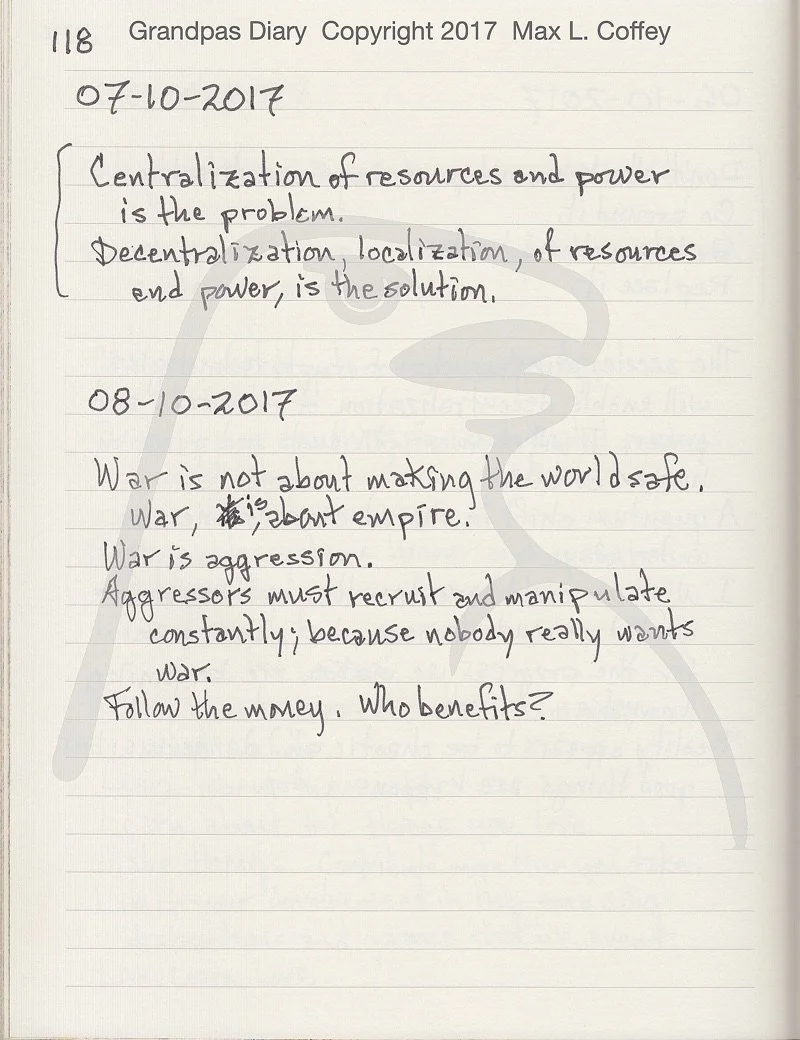 118 Grandpas Diary Copyright 2017 Max L. Coffey
07-10-2017
Centralization of resources and power
is the problem.
Decentralization, localization, of resources
and power, is the solution.
08-10-2017
War is not about making the world safe.
War, is, about empire.
War is aggression.
Aggressors must recruit and manipulate
constantly; because nobody really wants
war.
Follow the money. Who benefits?